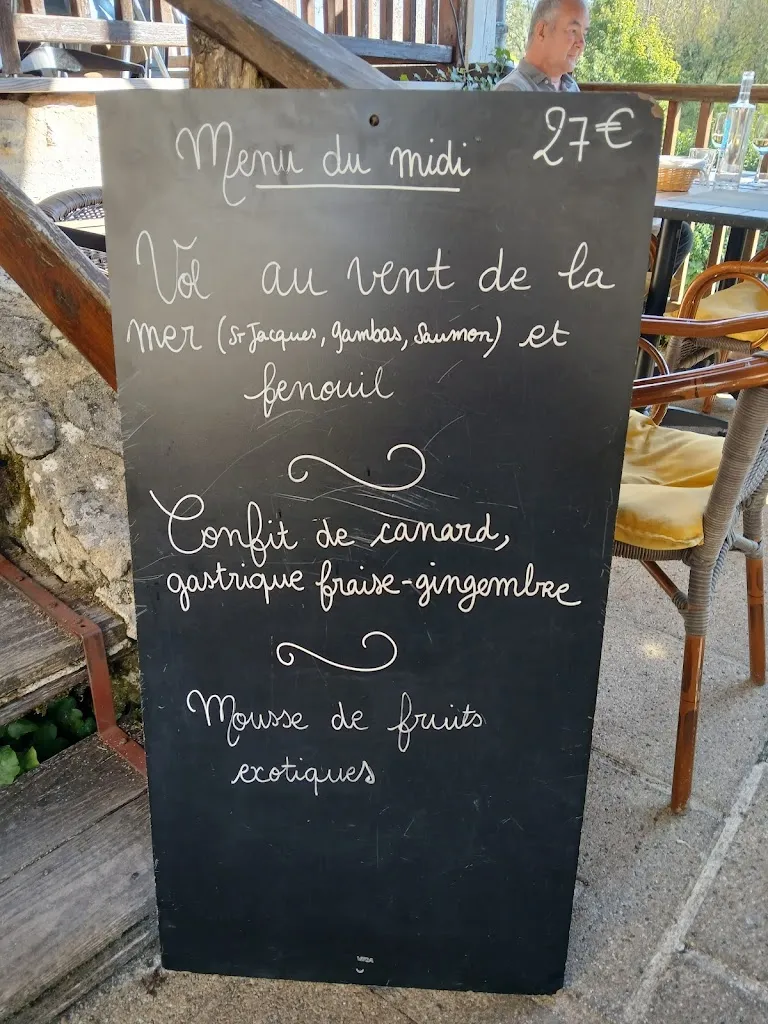 Menu du midi 27€
Vol au vent de la
mer (St Jacques, gambas, Saumon) et
fenouil
Confit de canard,
gastrique fraise-gingembre
Mousse de fruits
exotiques